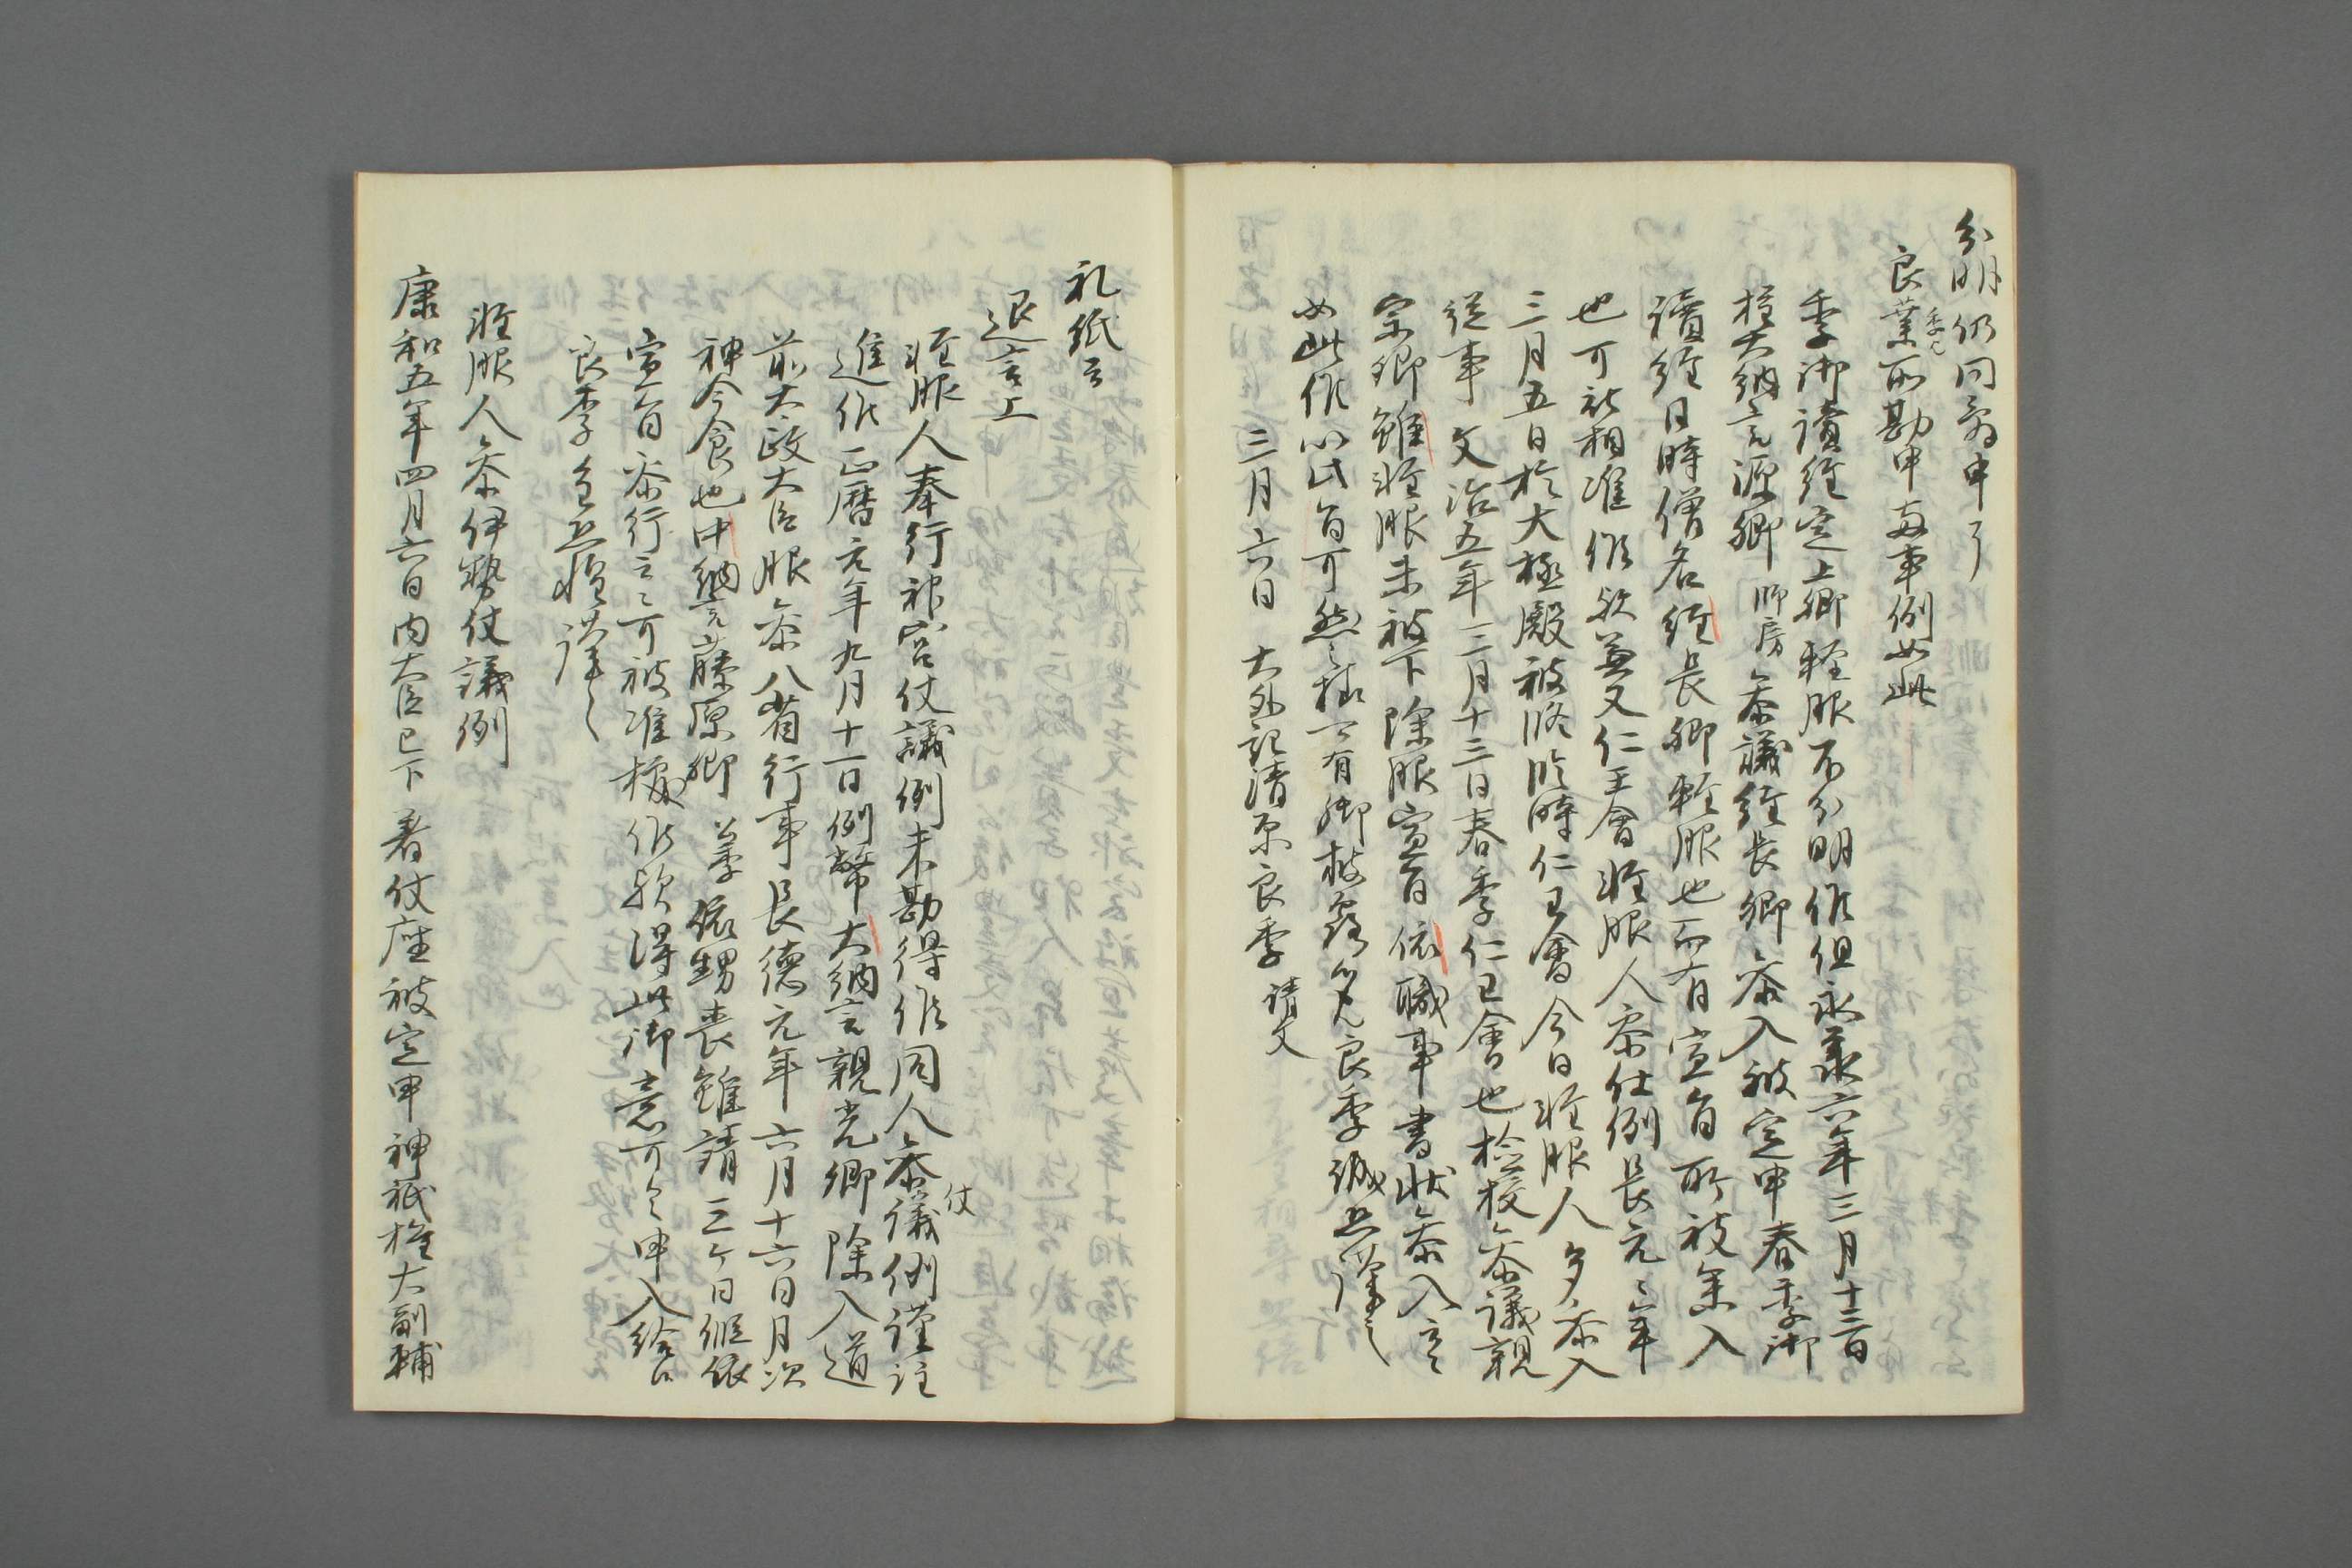 分明仍問寄申了
良業所勘申両事例如此
季御讀経定上卿軽服不分明候但永承六年三月十三日
権大納言源卿師房参議経長卿参入被定申春季御
讀経日時僧名経長卿軽服也而有宣旨所被参入
也可被相准候歟兼又仁王會軽服人参仕例長元々年
三月五日於大極殿被修臨時仁王會今日軽服人多参入
従事文治五年三月十三日春季仁王會也検校参議親
宗卿雖軽服未被下除服宣旨依職事書状参入云々
如此候以此旨可然之様可有御披露候良季誠恐謹言
三月六日 大外記清原良季請文
礼紙云
退言上
軽服人奉行神宮仗議例未勘得候同人参仗議例謹注
進候正暦元年九月十一日例幣大納言親光卿除入道
前太政大臣服参八省行事長徳元年六月十六日月次
神今食也中納言藤原卿依甥喪雖請三ケ日假依
宣旨参行云々可被准據候歟得此御意可令申入給候
良季重恐惶謹言
軽服人参伊勢仗議例
康和五年四月六日内大臣已下著仗座被定申神祇権大副輔